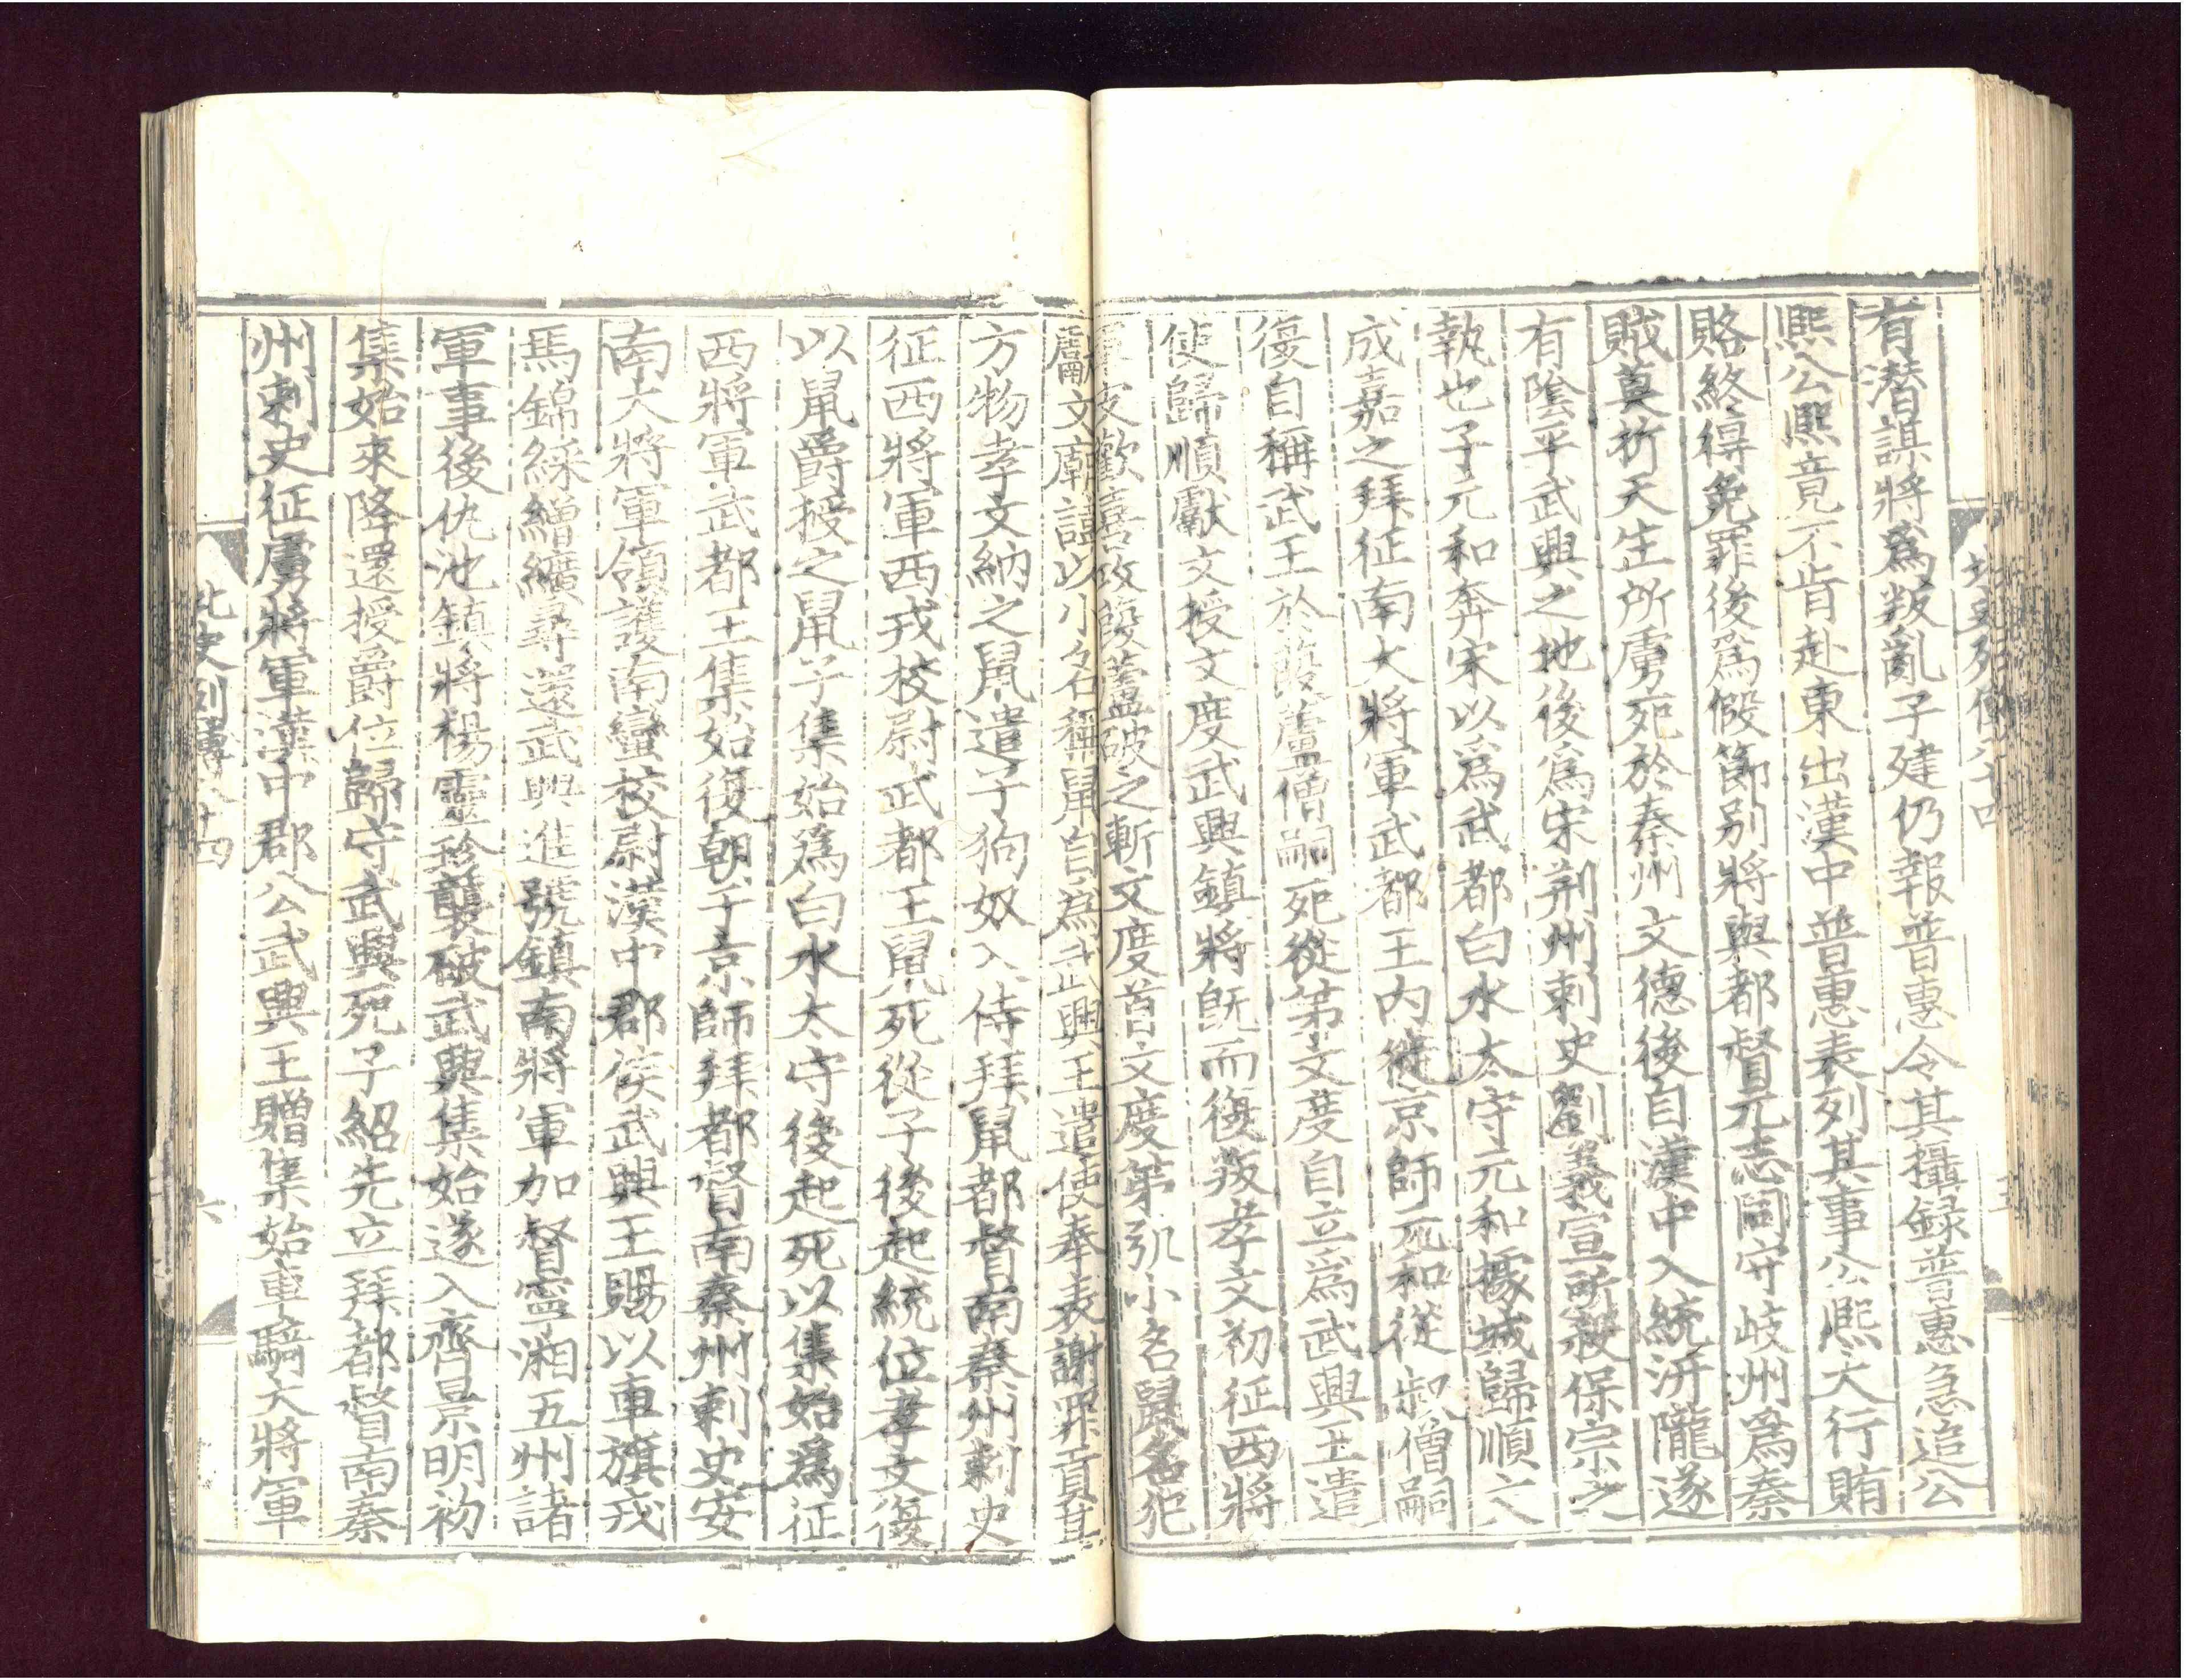 北史列傳八十四
五
有潜謀將爲叛亂子建仍報普惠令其攝録普惠急追公
熙公熙竟不肯赴東出漢中普惠表列其事公熙大行賄
賂終得免罪後爲假節别將與都督元志同守岐州爲秦
賊莫折天生所虜死於秦州文德後自漢中入統汧隴遂
有陰平武興之地後爲宋荆州刺史劉義宣所殺保宗之
執也子元和奔宋以爲武都白水太守元和據城歸順文
成嘉之拜征南大將軍武都王内徙京師元和從叔僧嗣
復自稱武王於葭蘆僧嗣死從弟文度自立爲武興王遣
使歸順獻文授文度武興鎮將旣而復叛孝文初征西將
軍皮歡喜攻葭蘆破之斬文度首文度弟弘小名鼠名犯
獻文廟諱以小名稱鼠自爲武興王遣使奉表謝罪貢其
方物孝文納之鼠遣子狗奴入侍拜鼠都督南秦州刺史
征西將軍西戎校尉武都王鼠死從子後起統位孝文復
以鼠爵授之鼠子集始爲白水太守後起死以集始爲征
西將軍武都王集始復朝于京師拜都督南秦州刺史安
南大將軍領護南蠻校尉漢中郡侯武興王賜以車旗戎
馬錦綵繒纊尋還武興進號鎮南將軍加督寧湘五州諸
軍事後仇池鎮將楊靈珍襲破武興集始遂入齊景明初
集始來降還授爵位歸守武興死子紹先立拜都督南秦
州刺史征虜將軍漢中郡公武興王贈集始車騎大將軍
北史列傳八十四
六